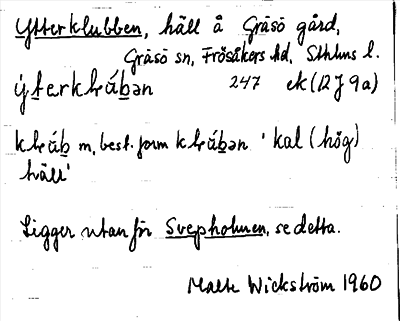 Ytterklubben, häll å Gräsö gård,
Gräsö sn, Frösåkers hd, Sthlms l.
247 ek (12J 9a)
m, best. form 'kal (hög)
häll'
Ligger utanför Svepholmen, se detta.
Malte Wickström 1960